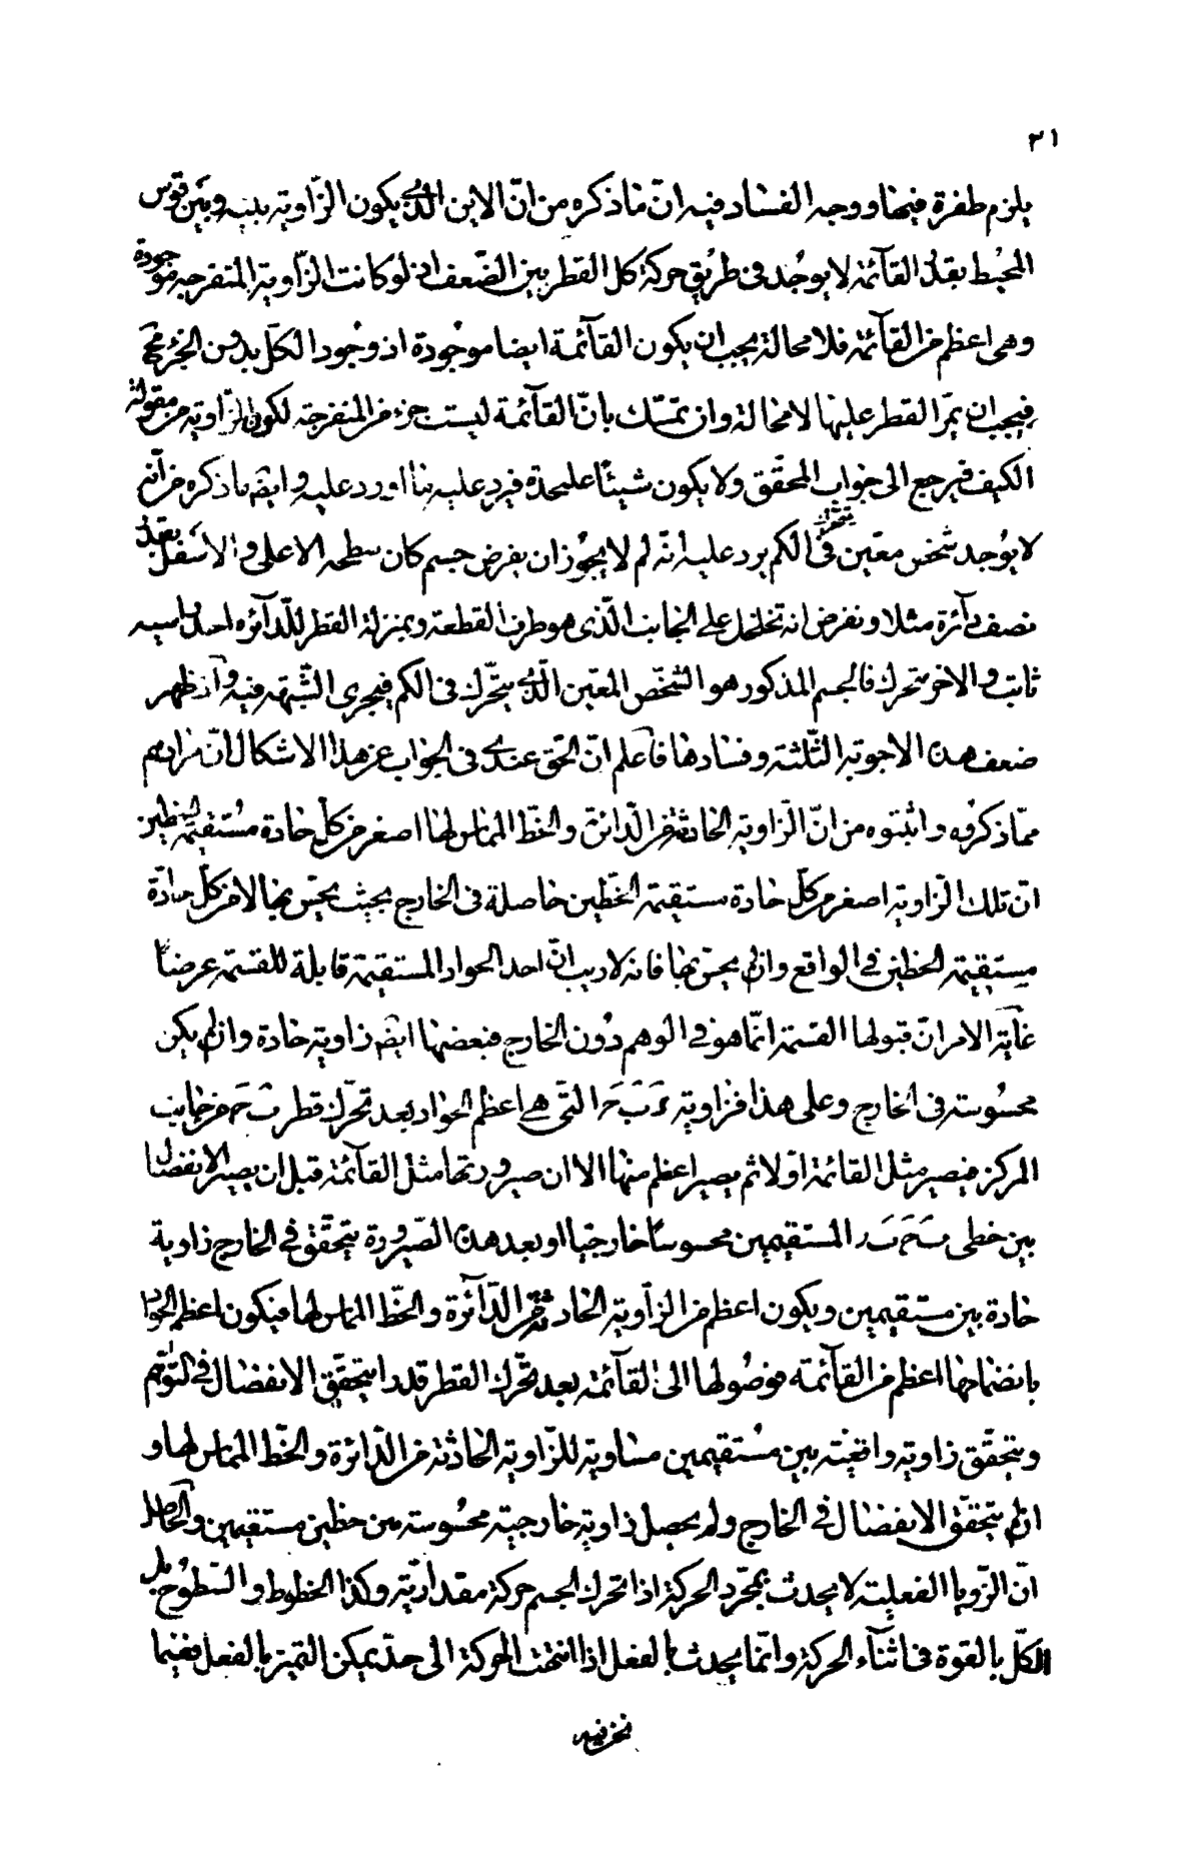 ٣١
يلزم طفرة فيها ووجه الفساد فيه انّ ما ذكره من انّ الاين الذى يكون الزّاوية بينه وبين قوس
المحيط بقدر القائمة لا يوجد فى طريق حركة كل القطر بين الضّعف اذ لو كانت الزّاوية المنفرجه موجودة
وهى اعظم من القآئمة فلا محالة يجب ان يكون القآئمة ايضا موجودة اذ وجود الكلّ بدون الجزء مح
فيجب ان يمرّ القطر عليها لا محالة وان تمسّك بانّ القآئمة ليست جزء من المنفرجة لكون الزّاوية من مقولة
الكيف فيرجع الى جواب المحقّق ولا يكون شيئًا عليحدة فيرد عليه ما اورد عليه وايضه ما ذكره من انّه
لا يوجد شخص معيّن يتحرّك فى الكم يرد عليه انّه لم لا يجوز ان يفرض جسم كان سطحه الاعلى والاسفل بقدر
نصف دآئرة مثلا ونفرض انه تخلخل على الجانب الّذى هو طرف القطعة وبمنزلة القطر للدّآئره احد راسيه
ثابت والاخر متحرك فالجسم المذكور هو الشخص المعيّن الذى يتحّرك فى الكم فيجرى الشّبهة فيه واذ ظهر
ضعف هذه الاجوبة الثّلثة وفسادها فآعلم انّ الحق عندى فى الجواب عن هذا الاشكال انّ مرادهم
ممّا ذكروه واثبتوه من انّ الزّاوية الحادثة من الدّائرة والخطّ المماس لها اصغر من كلّ حادة مستقيمة الخطين
انّ تلك الزّاوية اصغر من كلّ حادة مستقيمة الخطّين حاصلة فى الخارج بحيث يحسّ بها لا من كلّ حادّة
مستقيمة الخطين فى الواقع وان لم يحسّ بها فانه لا ريب انّ احد الحواد المستقيمة قابلة للقسمة عرضًا
غآية الامر انّ قبولها القسمة انّما هو فى الوهم دون الخارج فبعضها ايضه زاوية حادة وان لم يكن
محسوسة فى الخارج وعلى هذا فزاوية ءَ بَ حَ الّتى هى اعظم الحواد بعد تحرّك قطر بَ حَ من جانب
المركز فيصير مثل القائمة اوّلا ثم يصير اعظم منها الا ان صيرورتها مثل القآئمة قبل ان يصير الانفصال
بين خطى بَ حَ بَ د المستقيمين محسوسًا خارجيًا او بعد هذه الصّيرورة يتحقّق فى الخارج زاوية
حادة بين مستقيمين ويكون اعظم من الزاوية الحادثة من الدّآئرة والخطّ المماس لها فيكون اعظم الحواد
بانضمامها اعظم من القآئمة فوصولها الى القآئمة بعد تحّرك القطر قدرا يتحقّق الانفصال فى التوهّم
ويتحقّق زاوية واقعيّة بين مستقيمين مساوية للزّاوية الحادثة من الدّآئرة والخطّ المماس لها و
ان لم يتحقّق الانفصال فى الخارج ولم يحصل زاوية خارجيّة محسوسة من خطين مستقيمين والحاصل
انّ الزّوايا الفعليّة لا يحدث بمجّرد الحركة اذا تحرك الجسم حركة مقداريّة وكذا الخطوط والسّطوح بل
الكلّ بالقوة فى اثنآء الحركة وانّما يحدث بالفعل اذا انتهت الحركة الى حدّ يمكن التميز بالفعل ففيما
نحن فيه